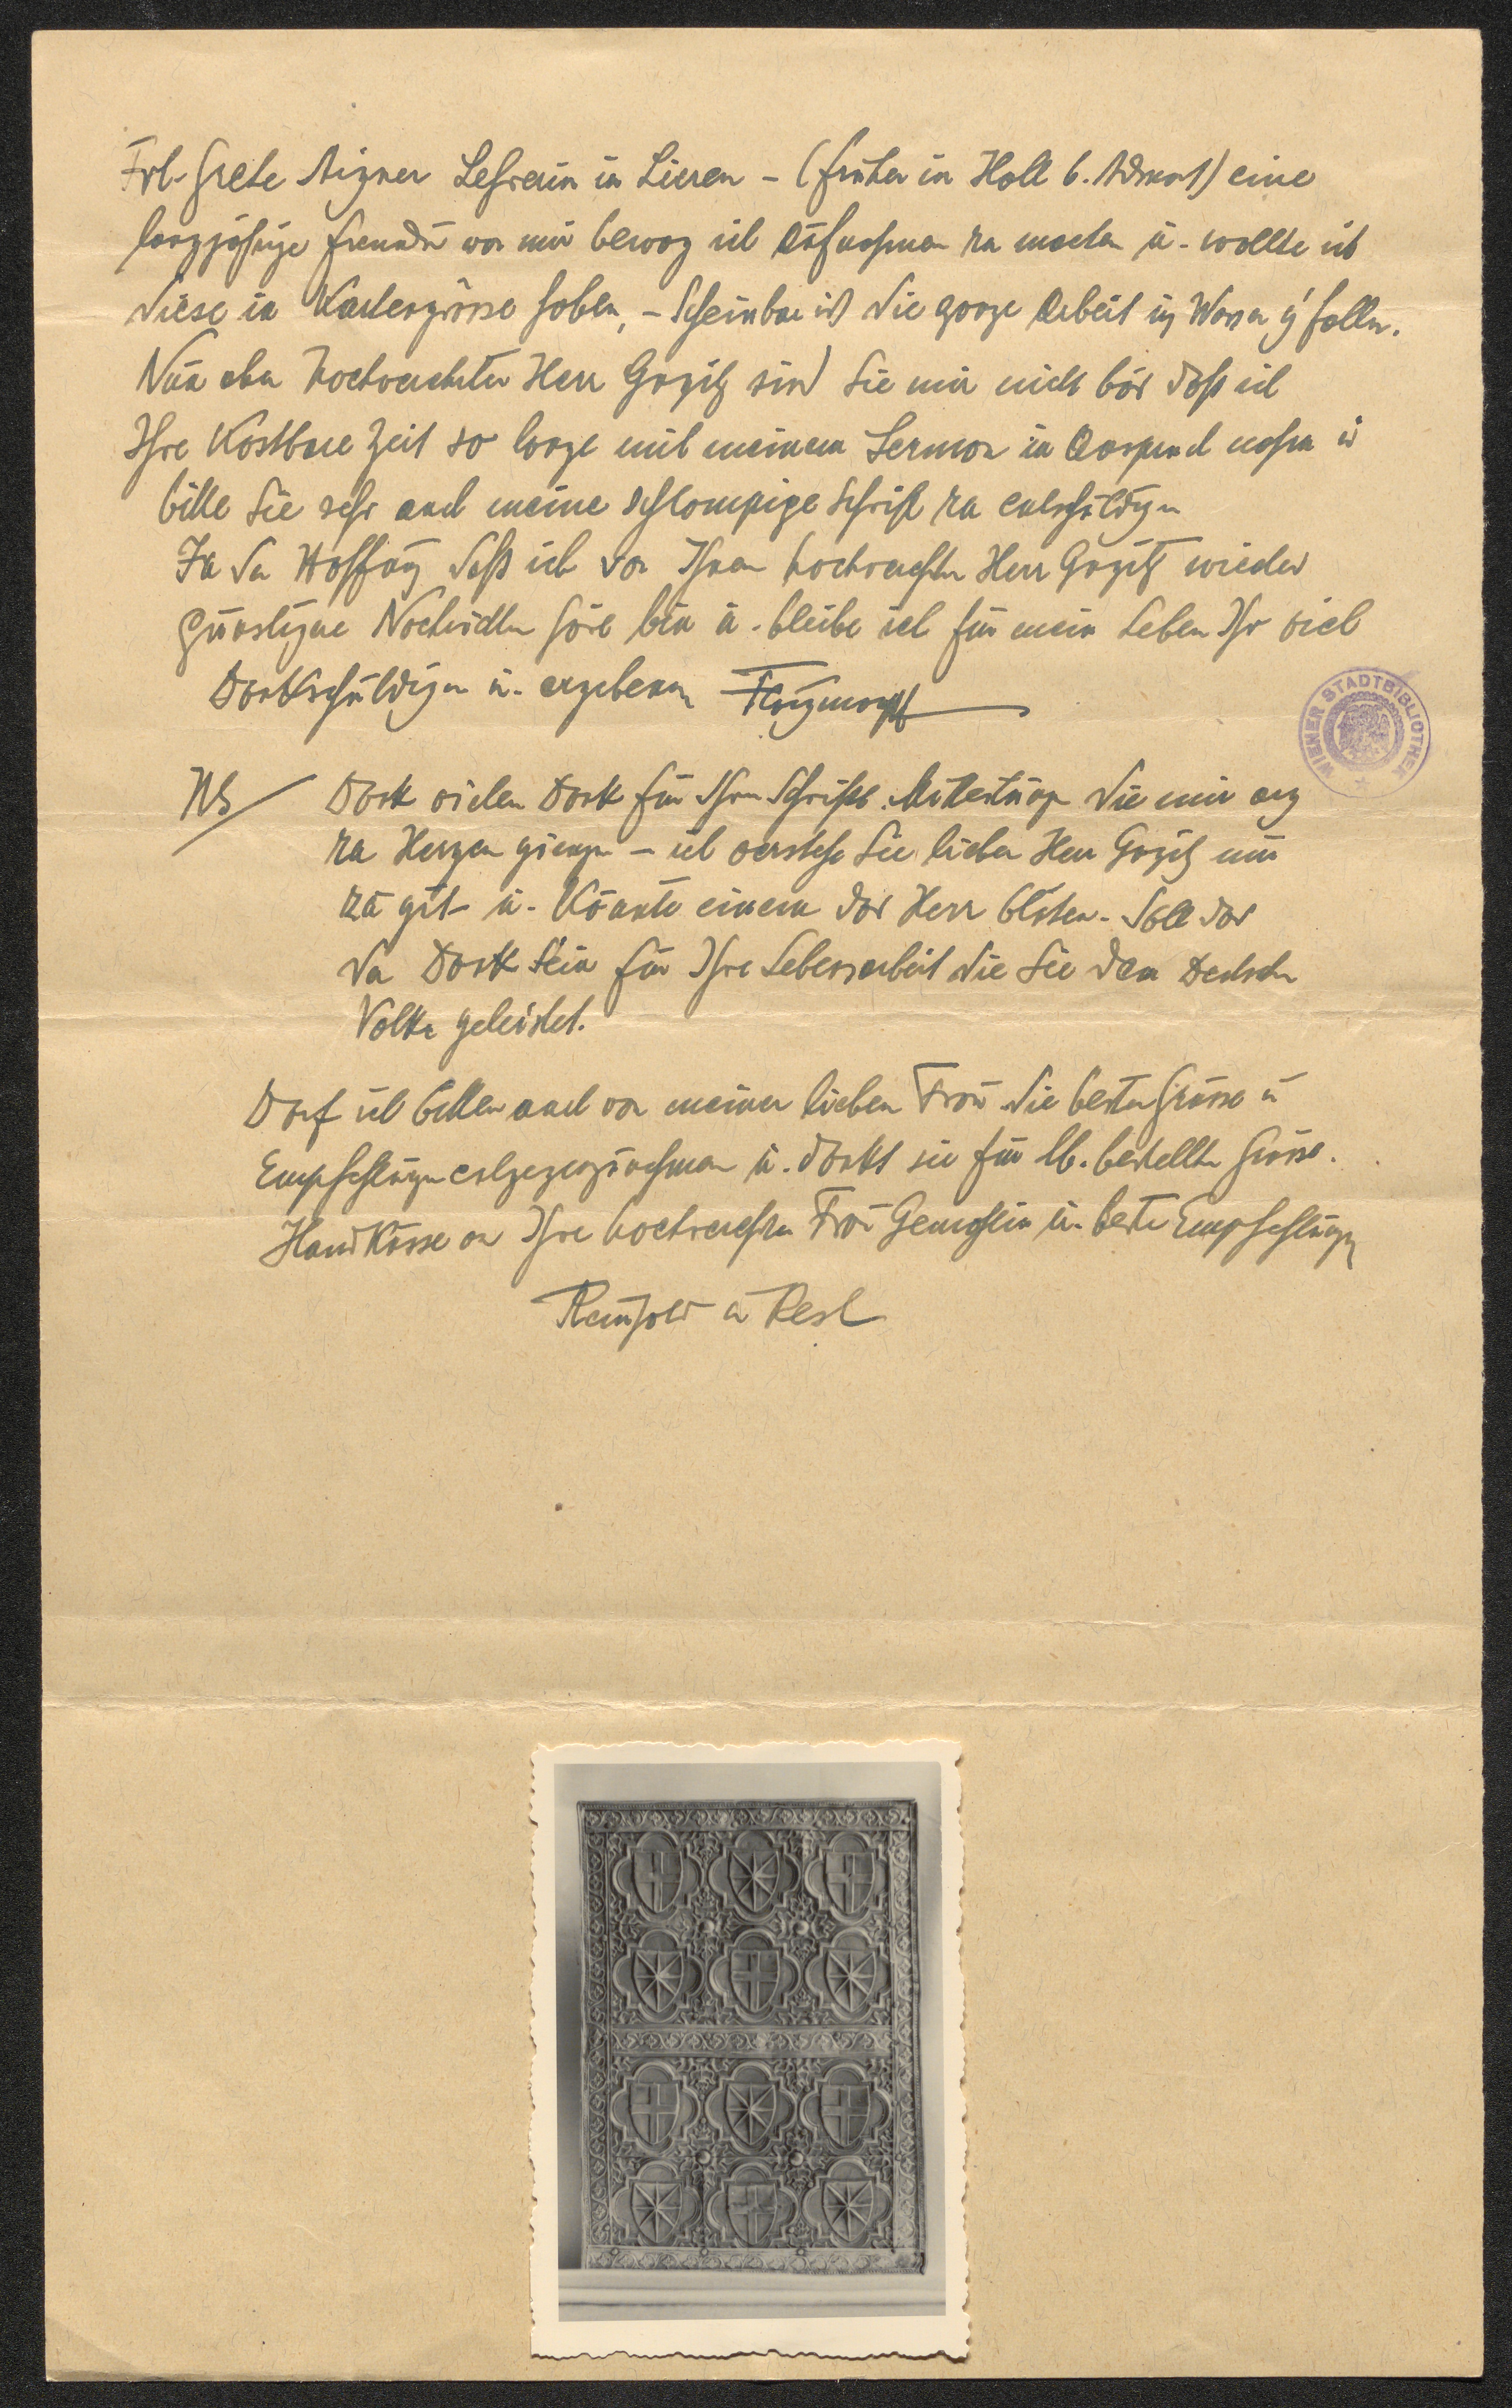 Frl. Grete Aigner Lehrerin in Liezen – (früher in Hall b. Admont) eine
langjährige Freundin von mir bewog ich Aufnahmen zu machen u. wollte ich
diese in Kartengrösse haben, – Scheinbar ist die ganze Arbeit ins Wasser g'fallen.
Nun aber hochverehrter Herr Ginzkey sind Sie mir nicht bös daß ich
Ihre kostbare Zeit so lange mit meinem Sermon in Anspruch nahm u
bitte Sie sehr auch meine schlampige Schrift zu entschuldigen
In der Hoffnung daß ich von Ihnen hochverehrter Herr wieder
günstigere Nachrichten höre bin u. bleibe ich für mein Leben Ihr viel
Dankschuldigen u. ergebenen
NS/ Dank vielen Dank für Ihre Schriftl. Mitteilungen die mir arg
zu Herzen gingen – ich verstehe Sie lieber Herr nur
zu gut u. könnte einem das Herz bluten. Soll das
der Dank sein für Ihre Lebensarbeit die Sie dem Deutschen
Volke geleistet.
Darf ich bitten auch von meiner lieben Frau die besten Grüsse u
Empfehlungen entgegenzunehmen u. dankt sie für lb. bestellte Grüsse.
Handküsse an Ihre hochverehrte Frau Gemahlin u. beste Empfehlungen
Reinhold u Resl
WIENER STADTBIBLIOTHEK